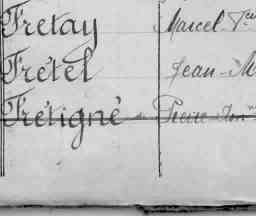 Fretay Marcel
Frétel Jean-M
Frétigné Pierre